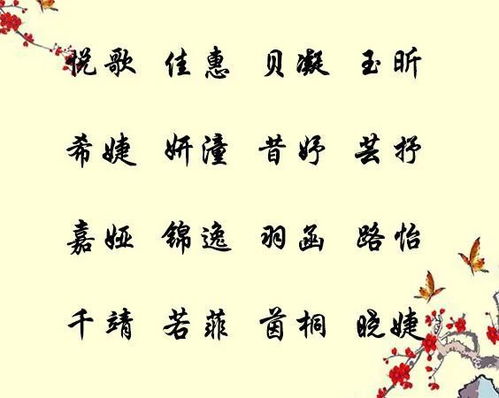 悦歌 佳惠 贝凝 玉昕
希婕 妍潼 昔妤 芸抒
嘉娅 锦逸 羽菡 路怡
千靖 若菲 茵桐 晓婕